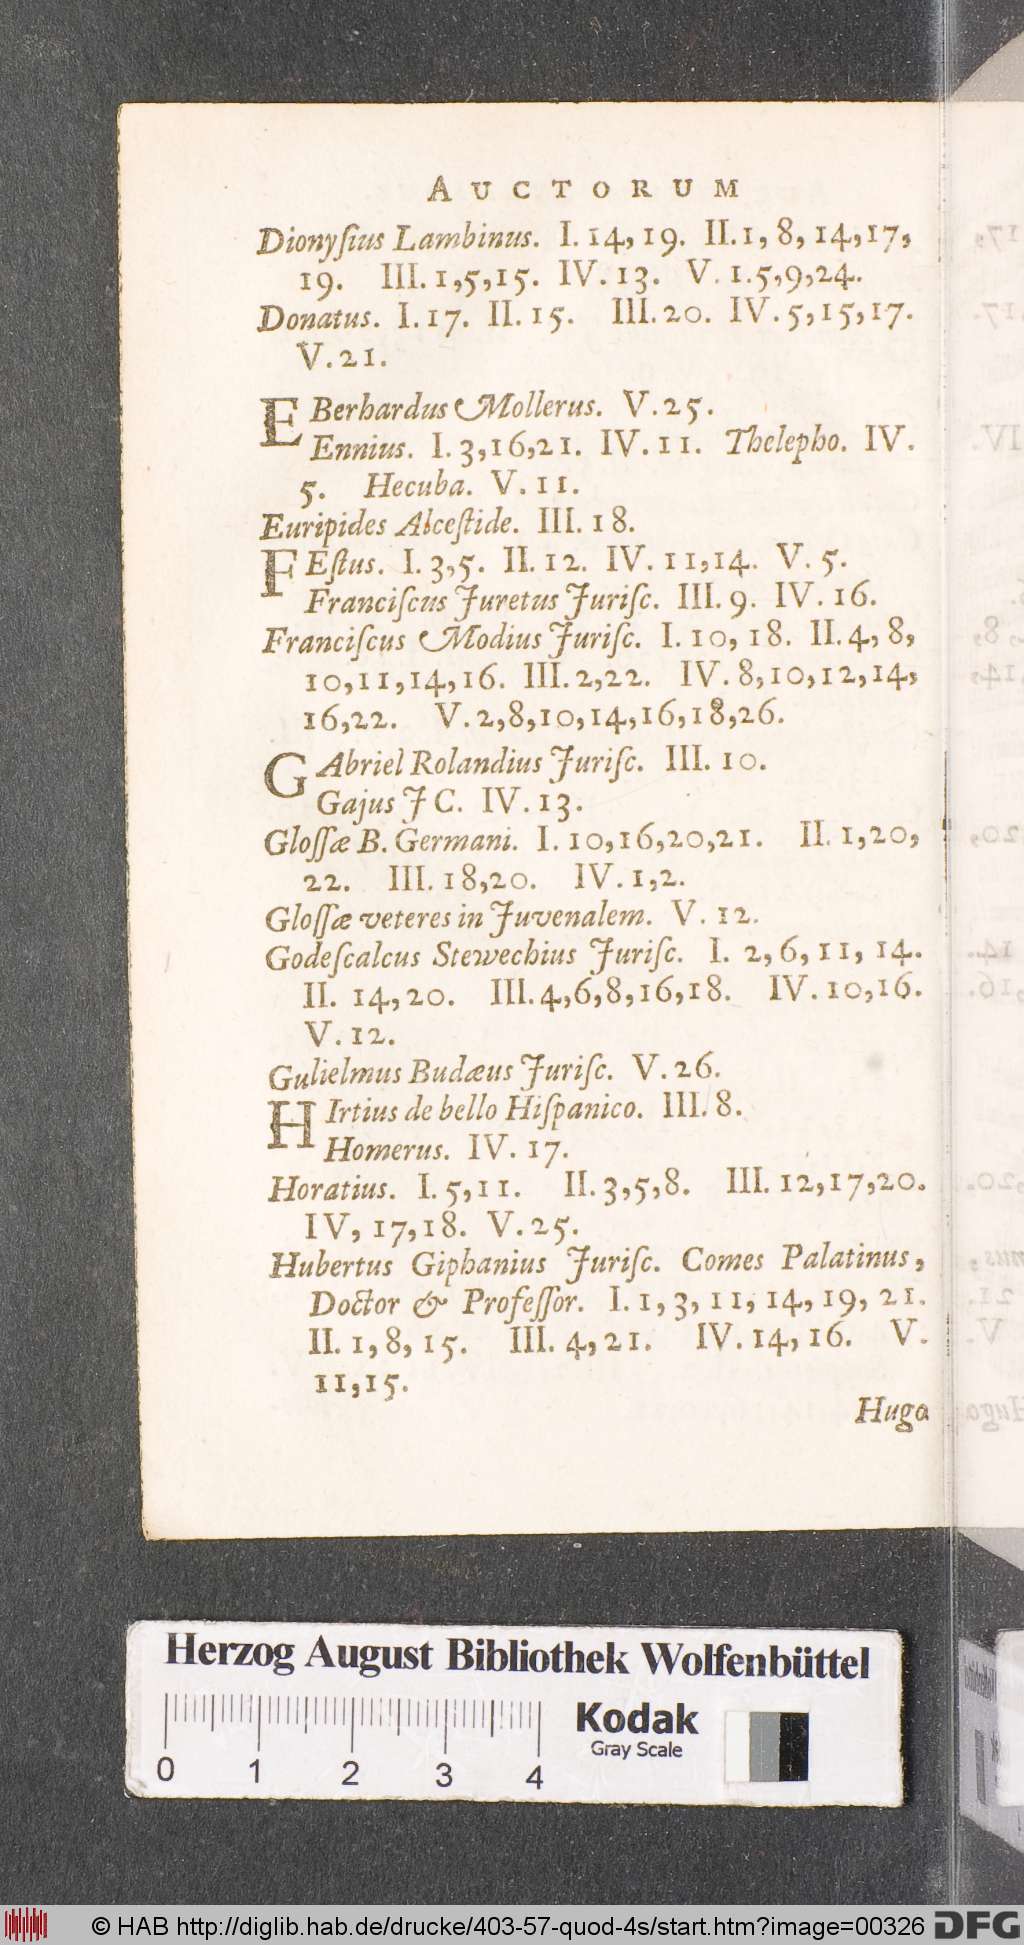 AUCTORUM
Dionyſius Lambinus. I. 14, 19. II. 1, 8, 14, 17,
19. III. 1, 5, 15. IV. 13. V. 1. 5, 9, 24.
Donatus. I. 17. II. 15. III. 20. IV. 5, 15, 17.
V. 21.
EBerhardus Mollerus. V. 25.
Ennius. I. 3, 16, 21. IV. 11. Thelepho. IV.
5. Hecuba. V. 11.
Euripides Alceſtide. III. 18.
FEſtus. I. 3, 5. II. 12. IV. 11, 14. V. 5.
Franciſcus Juretus Juriſc. III. 9. IV. 16.
Franciſcus Modius Juriſc. I. 10, 18. II. 4, 8,
10, 11, 14, 16. III. 2, 22. IV. 8, 10, 12, 14,
16, 22. V. 2, 8, 10, 14, 16, 18, 26.
GAbriel Rolandius Juriſc. III. 10.
Gajus J C. IV. 13.
Gloſſæ B. Germani. I. 10, 16, 20, 21. II. 1, 20,
22. III. 18, 20. IV. 1, 2.
Gloſſæ veteres in Juvenalem. V. 12.
Godeſcalcus Stewechius Juriſc. I. 2, 6, 11, 14.
II. 14, 20. III. 4, 6, 8, 16, 18. IV. 10, 16.
V. 12.
Gulielmus Budæus Juriſc. V. 26.
HIrtius de bello Hiſpanico. III. 8.
Homerus. IV. 17.
Horatius. I. 5, 11. II. 3, 5, 8. III. 12, 17, 20.
IV, 17, 18. V. 25.
Hubertus Giphanius Juriſc. Comes Palatinus,
Doctor & Profeſſor. I. 1, 3, 11, 14, 19, 21.
II. 1, 8, 15. III. 4, 21. IV. 14, 16. V.
11, 15.
Hugo
Herzog August Bibliothek Wolfenbüttel
Kodak
Gray Scale
0 1 2 3 4
© HAB http://diglib.hab.de/drucke/403-57-quod-4s/start.htm?image=00326
DFG